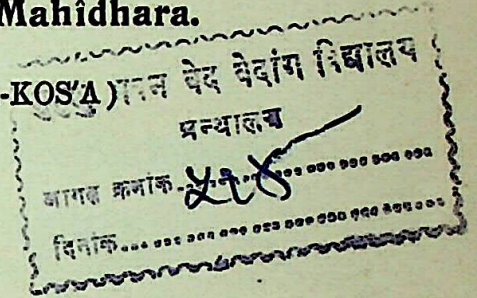 Mahîdhara.
-KOS'A)
भवन वेद वेदांग विद्यालय
ग्रन्थालय
आगत क्रमांक
दिनांक